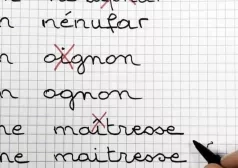 n nénufar
n oignon
n ognon
ne maîtresse
ne maitresse